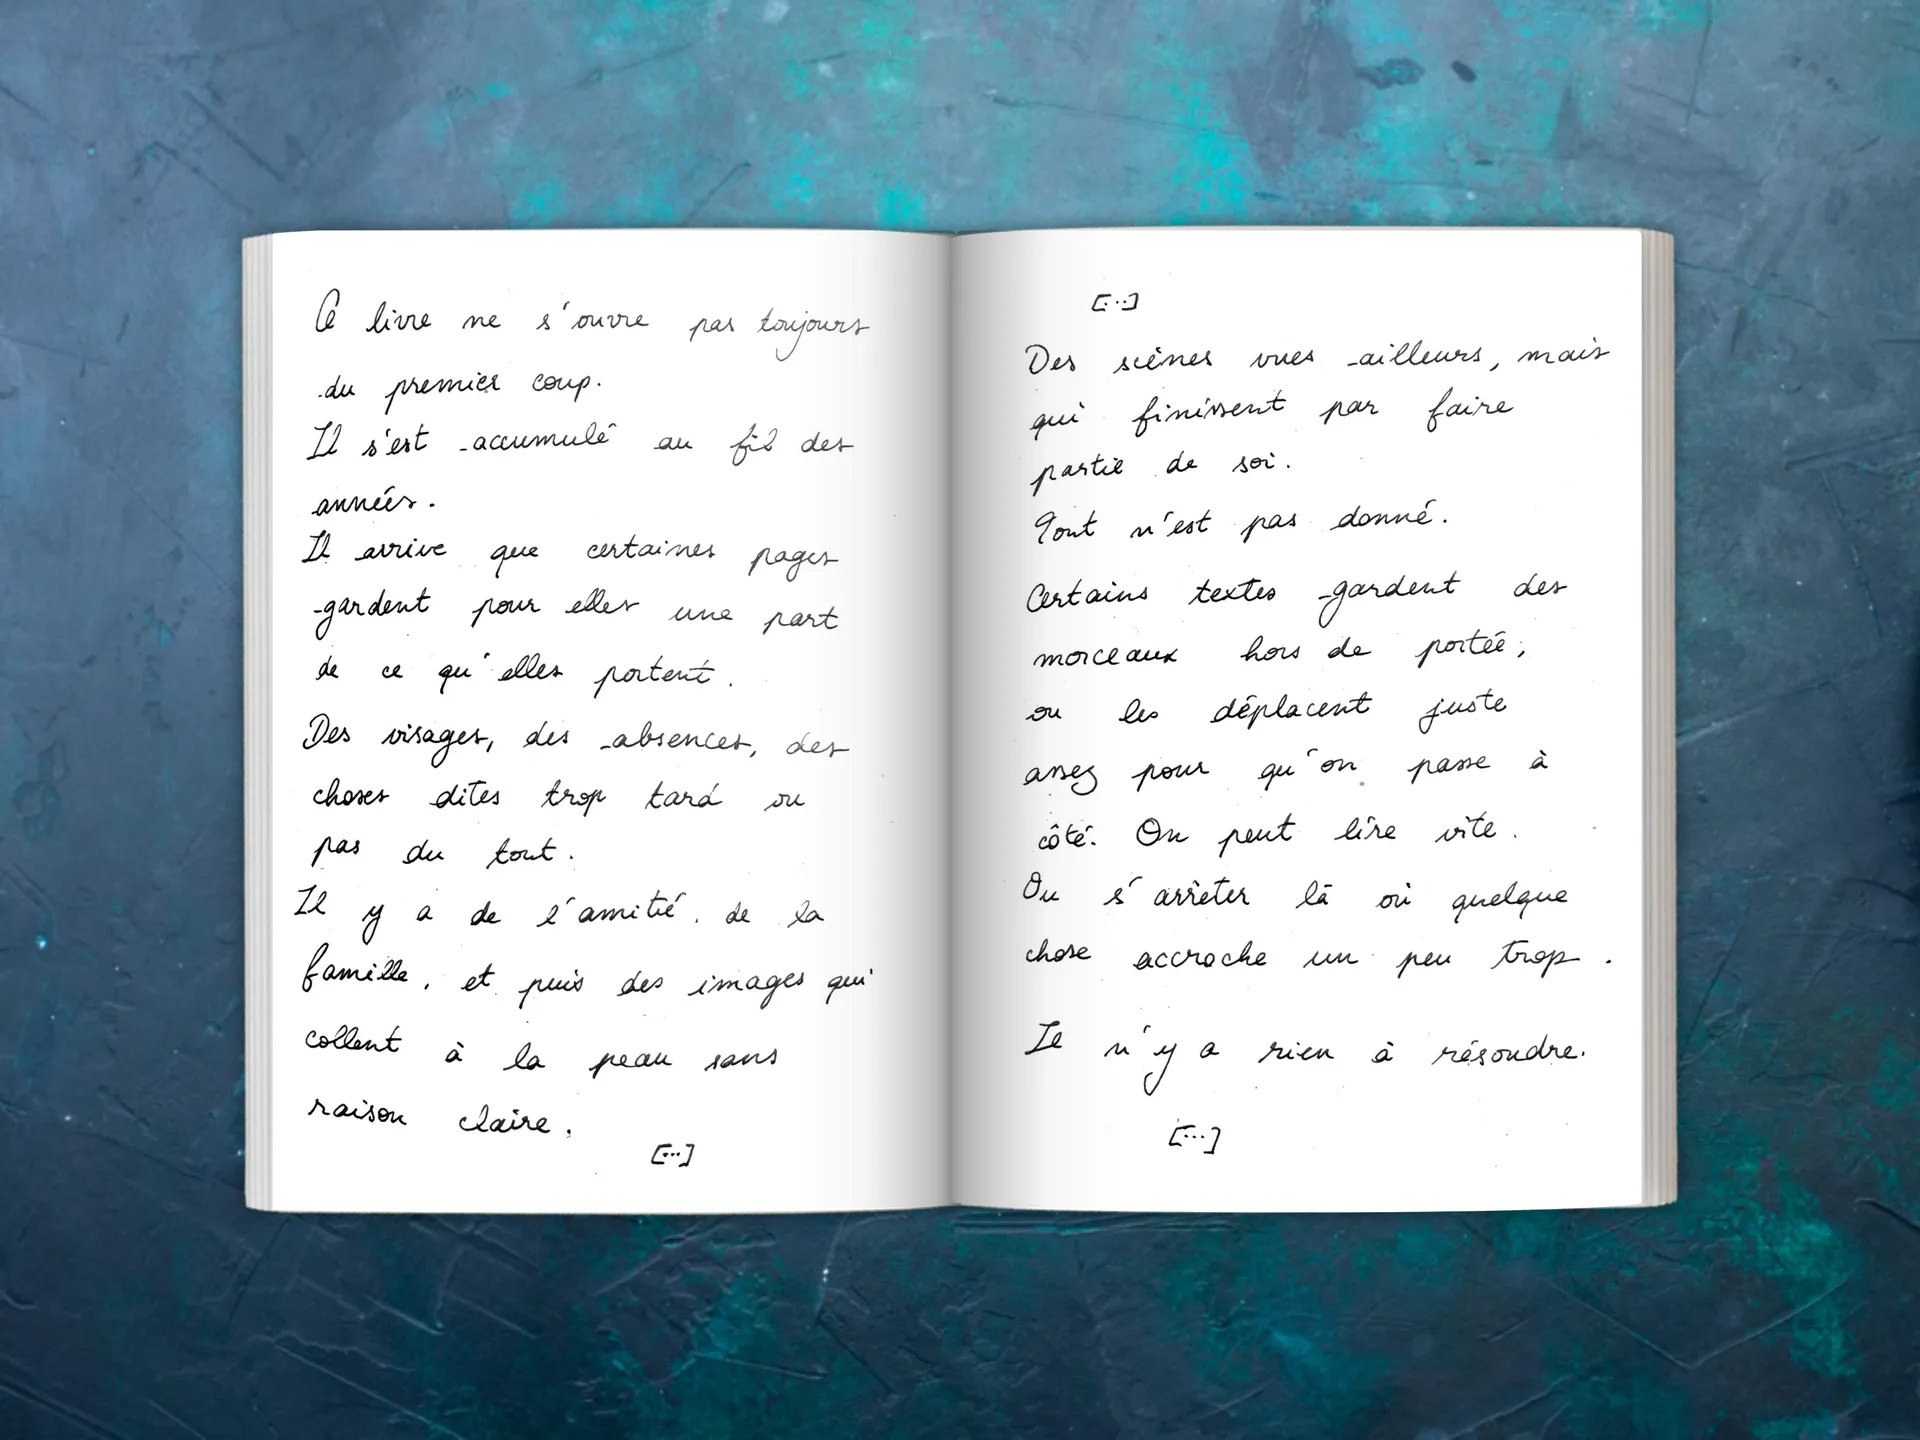 Ce livre ne s'ouvre pas toujours
du premier coup.
Il s'est accumulé au fil des
années.
Il arrive que certaines pages
gardent pour elles une part
de ce qu'elles portent.
Des visages, des absences, des
choses dites trop tard ou
pas du tout.
Il y a de l'amitié, de la
famille, et puis des images qui
collent à la peau sans
raison claire.
[...]
[...]
Des scènes vues ailleurs, mais
qui finissent par faire
partie de soi.
Tout n'est pas donné.
Certains textes gardent des
morceaux hors de portée,
ou les déplacent juste
assez pour qu'on passe à
côté. On peut lire vite.
Ou s'arrêter là où quelque
chose accroche un peu trop.
Il n'y a rien à résoudre.
[...]